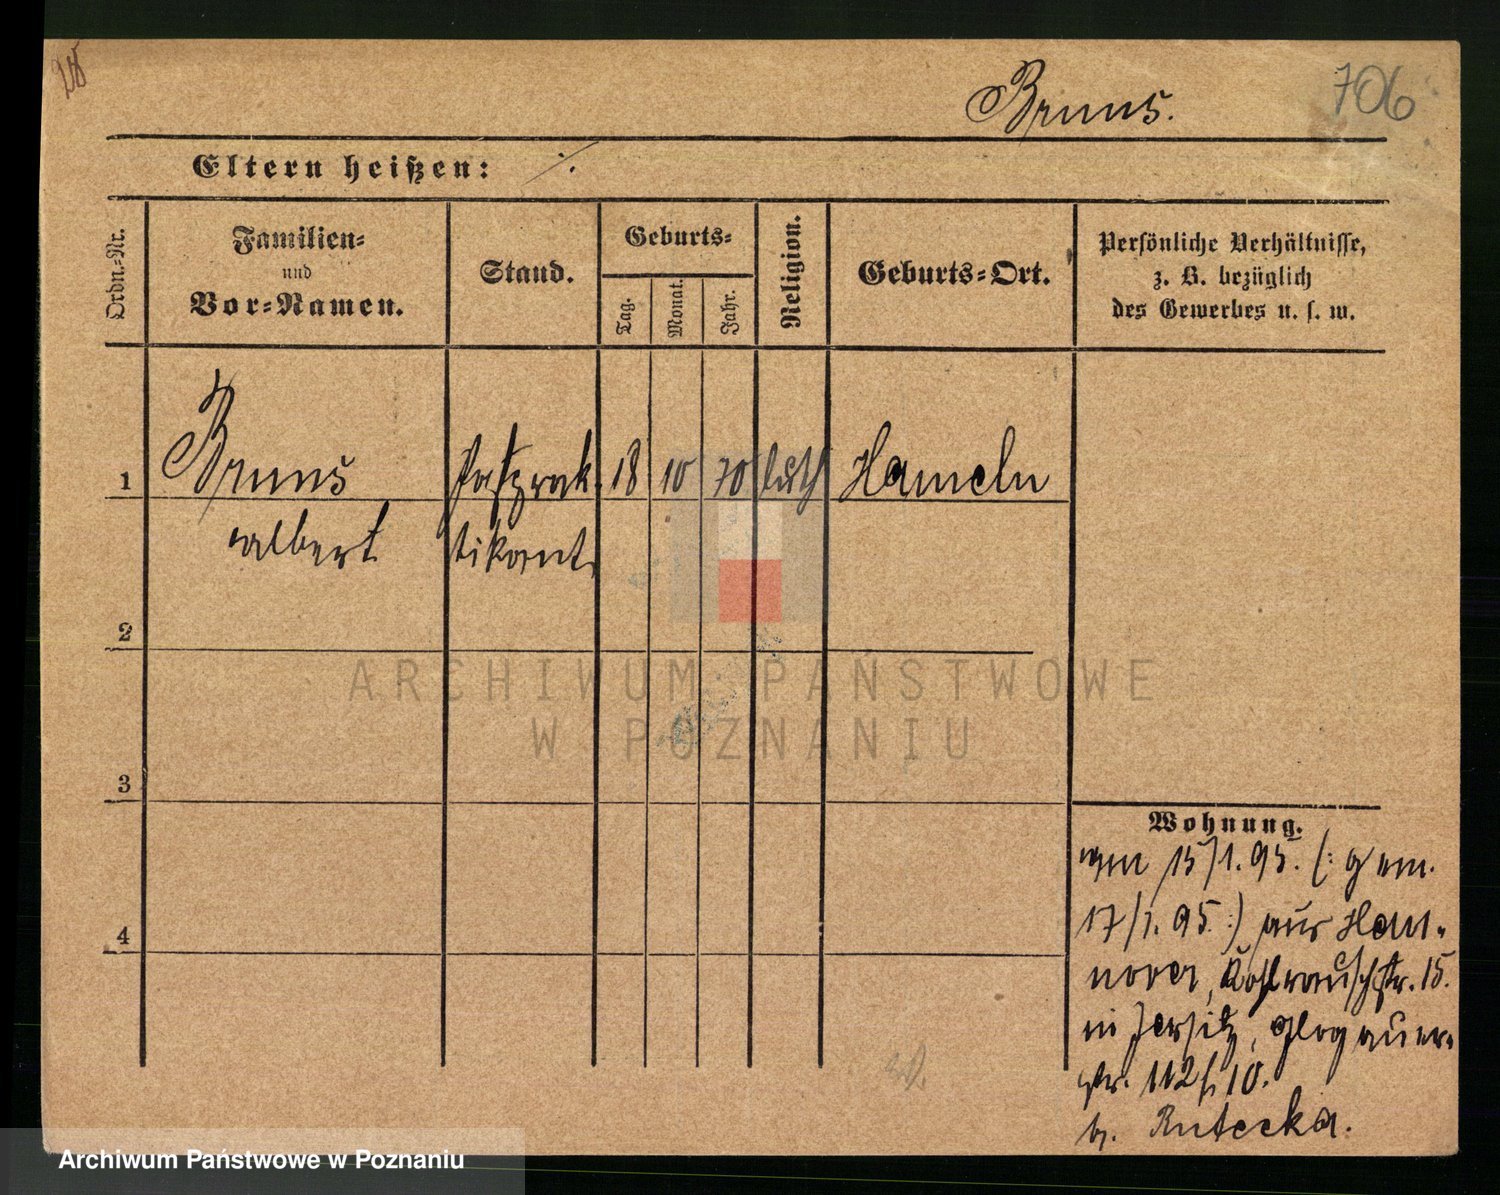 Bruns.
706
Eltern heißen: ·/.
Ordn.-Nr.
Familien-
und
Vor-Namen.
Stand.
Geburts-
Tag.
Monat.
Jahr.
Religion.
Geburts-Ort.
Persönliche Verhältnisse,
z. B. bezüglich
des Gewerbes u. s. w.
1
Bruns
Postprak-
18
10
70
luth
Hameln
Albert
tikant.
2
ARCHIWUM PAŃSTWOWE
W POZNANIU
3
Wohnung.
am 15/1. 95. (: gem.
17/1. 95. :) aus Han-
4
nover, Kohlrauschstr. 15.
in Jersitz, Glogauer-
str. 112 10.
b. Rutecka.
Archiwum Państwowe w Poznaniu